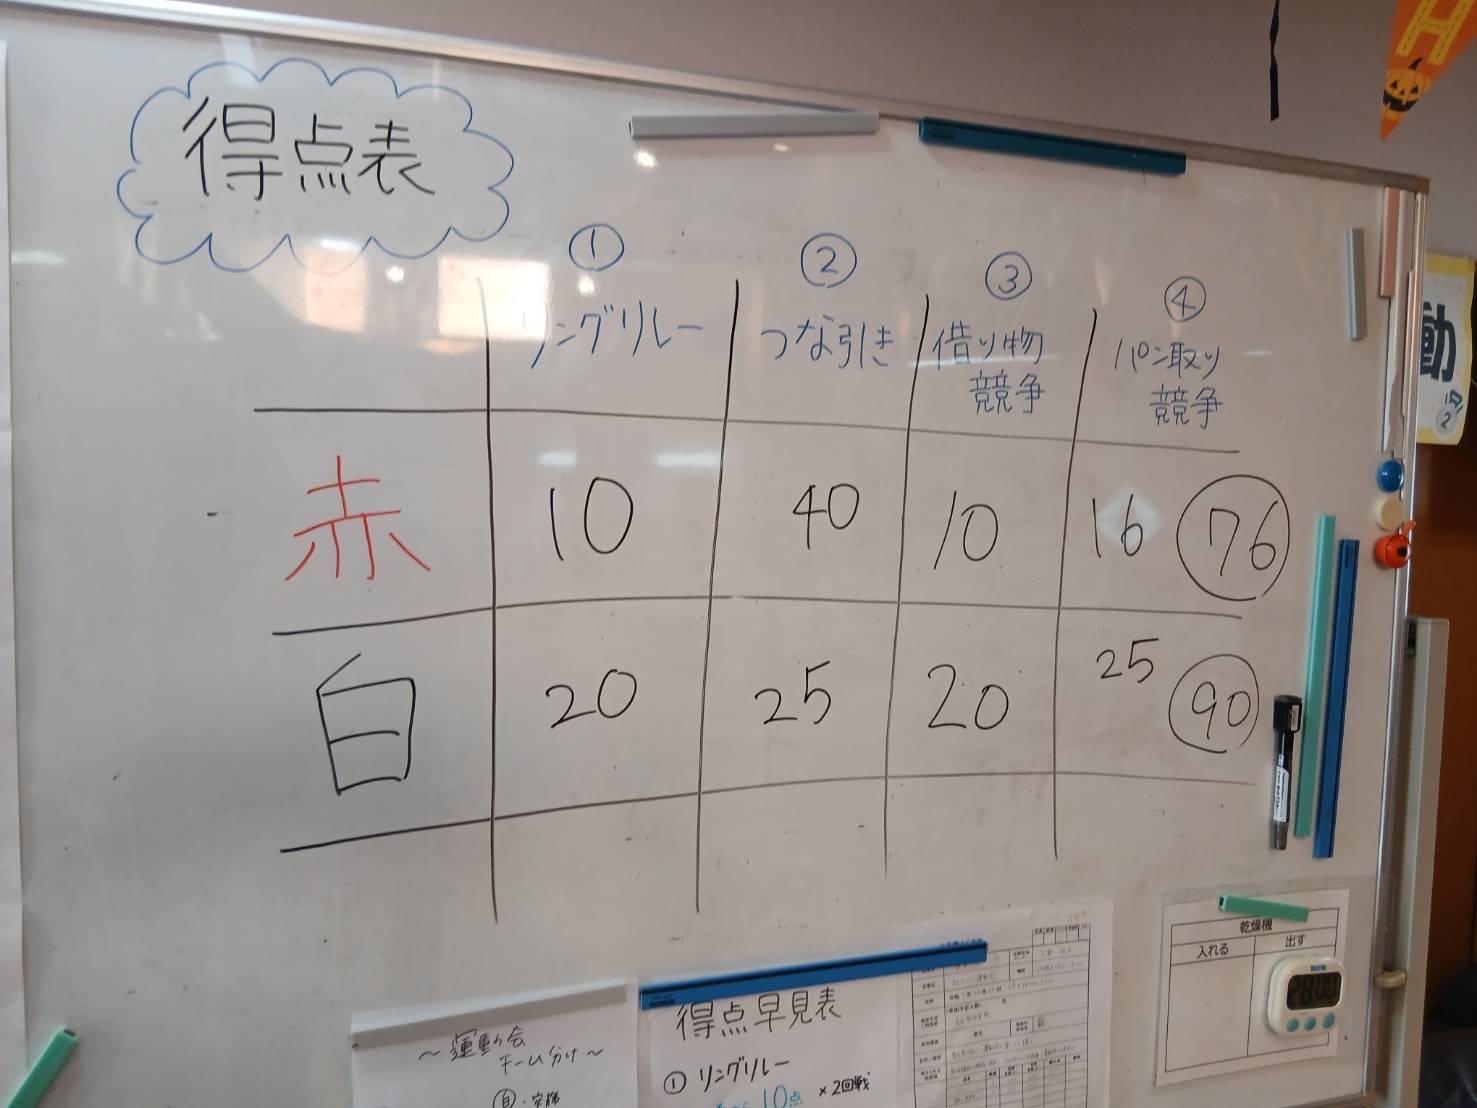 得点表
① ② ③ ④
リングリレー つな引き 借り物競争 パン取り競争
赤 10 40 10 16 76
白 20 25 20 25 90
H
動
2
乾燥機
入れる 出す
28:00
～運動会
チーム分け～
得点早見表
① リングリレー
10点 ×2回戦